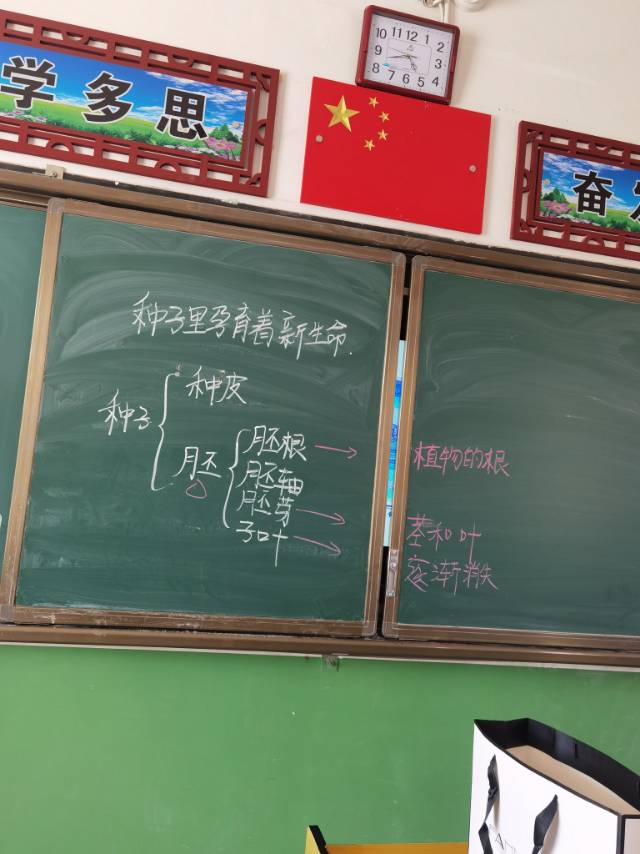 学多思
奋
10 11 12 1 2 3 4 5 6 7 8 9
种子里孕育着新生命.
种子
种皮
胚
胚根
胚轴
胚芽
子叶
植物的根
茎和叶
逐渐消失